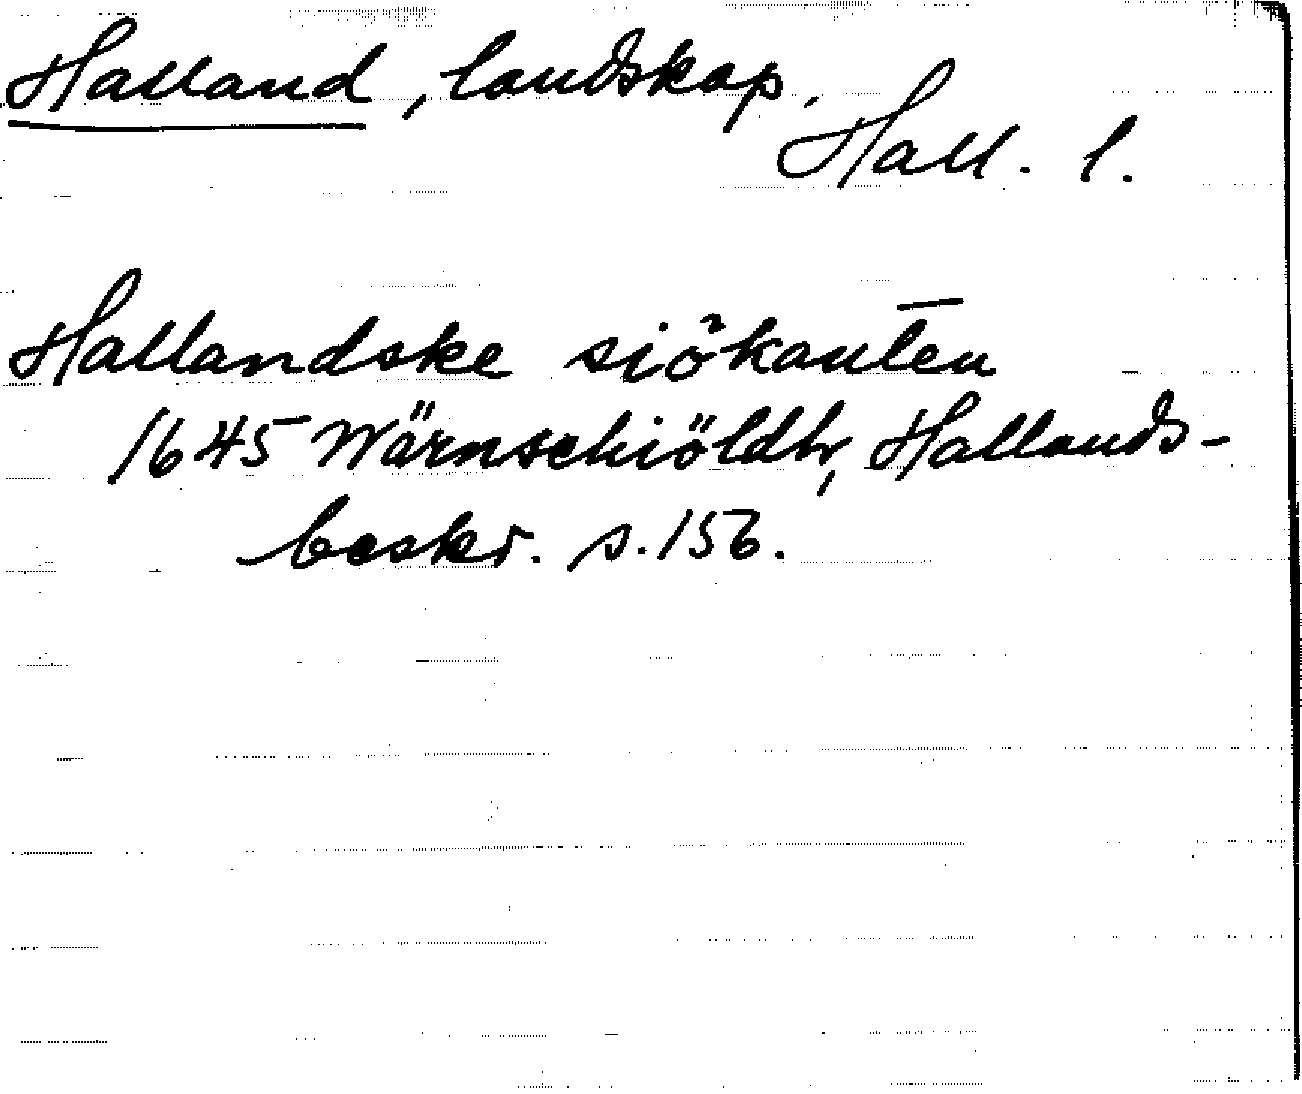 Halland, landskap.
Hall. l.
Hallandske siökanten
1645 Wärnschiöldh, Hallands-
beskr. s. 156.